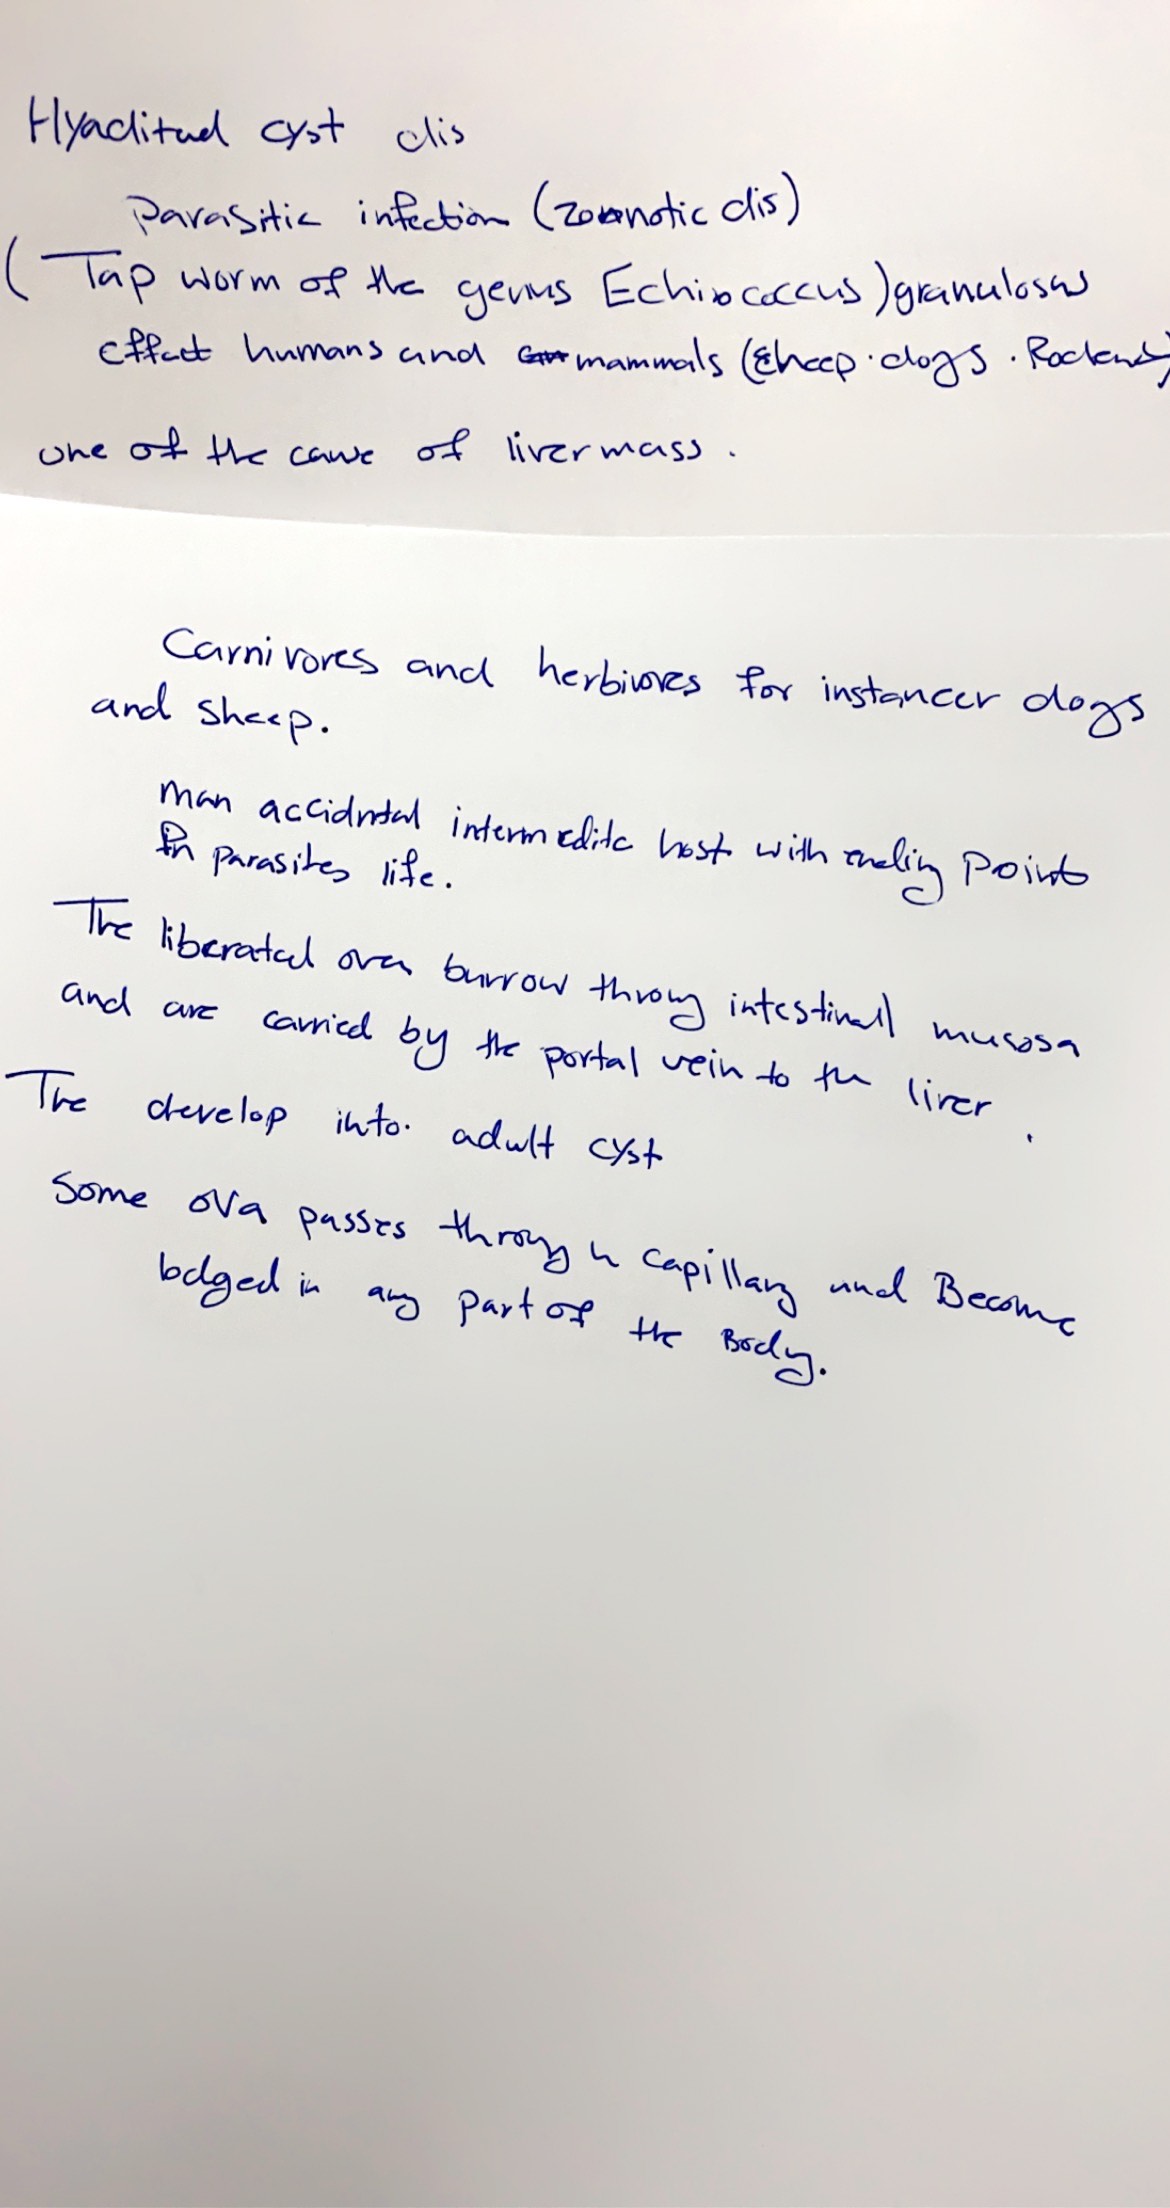 Hyaditud cyst dis
Parasitic infection (zoonotic dis)
(Tap worm of the genus Echinococcus) granulosus
effect humans and mammals (sheep . dogs . Rodents)
one of the cause of liver mass .
Carnivores and herbivores for instancer dogs
and sheep.
man accidntal intermedite host with ending point
in parasites life.
The liberated ova burrow throug intestinall mucosa
and are carried by the portal vein to the liver .
The develop into adult cyst
Some ova passes through capillary and Become
lodged in any part of the Body.